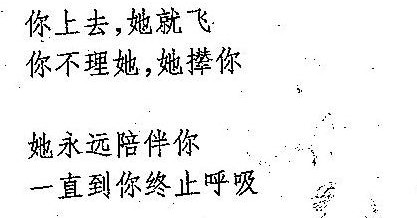 你上去，她就飞
你不理她，她撵你
她永远陪伴你
一直到你终止呼吸